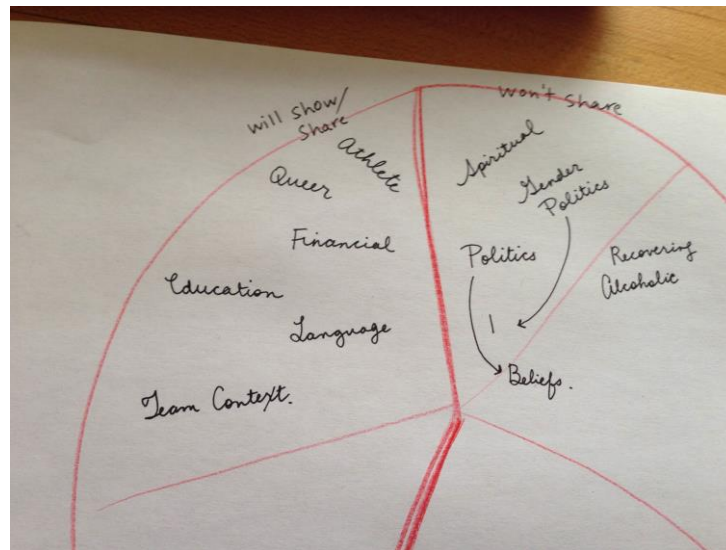 will show/
Share
Athlete
Queer
Financial
Education
Language
Team Context.
won't share
Spiritual
Gender
Politics
Politics
Recovering
Alcoholic
Beliefs.